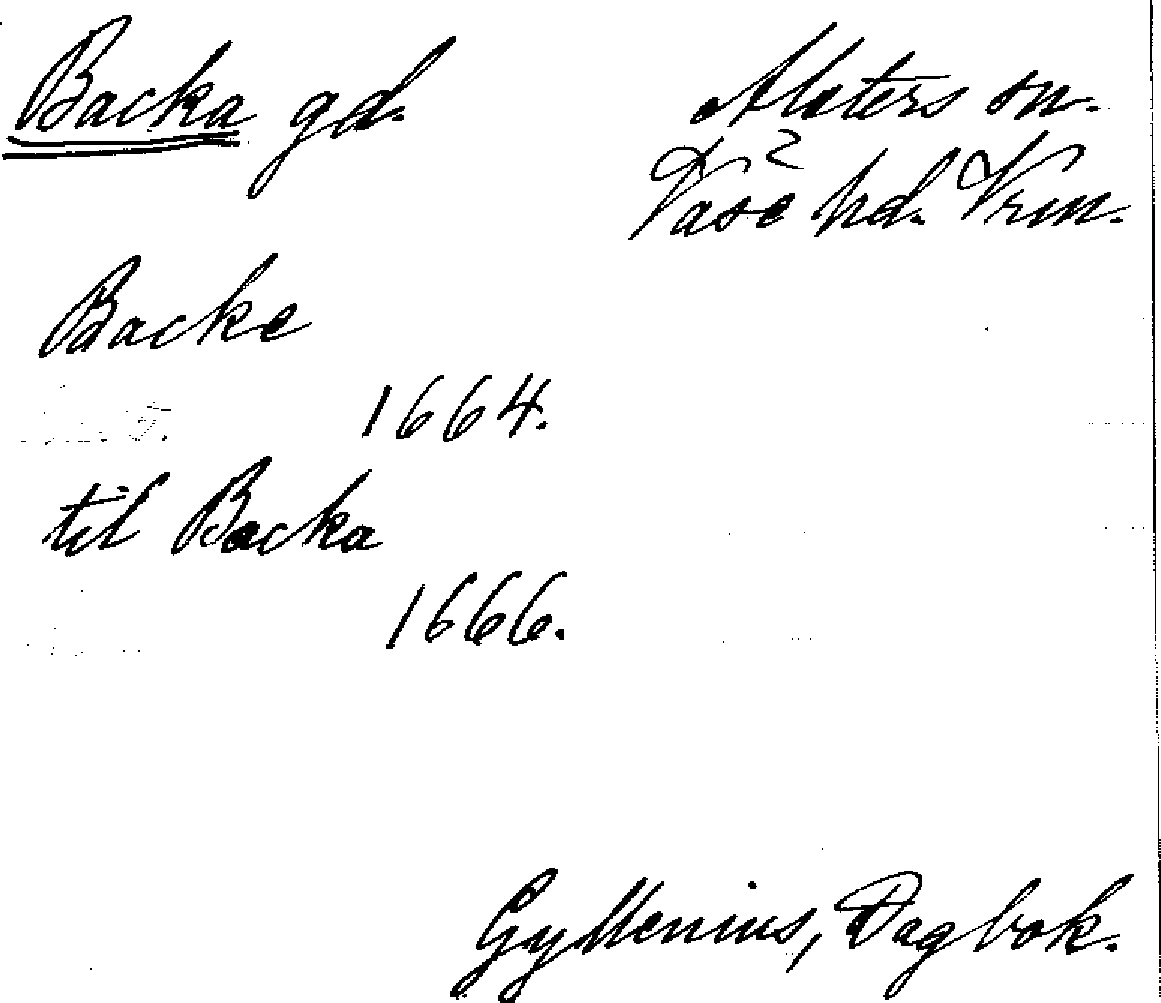 Backa gd.
Alsters sn.
Väse hd. Vrm.
2
Backe
1664.
til Backa
1666.
Gyllenius, Dagbok.